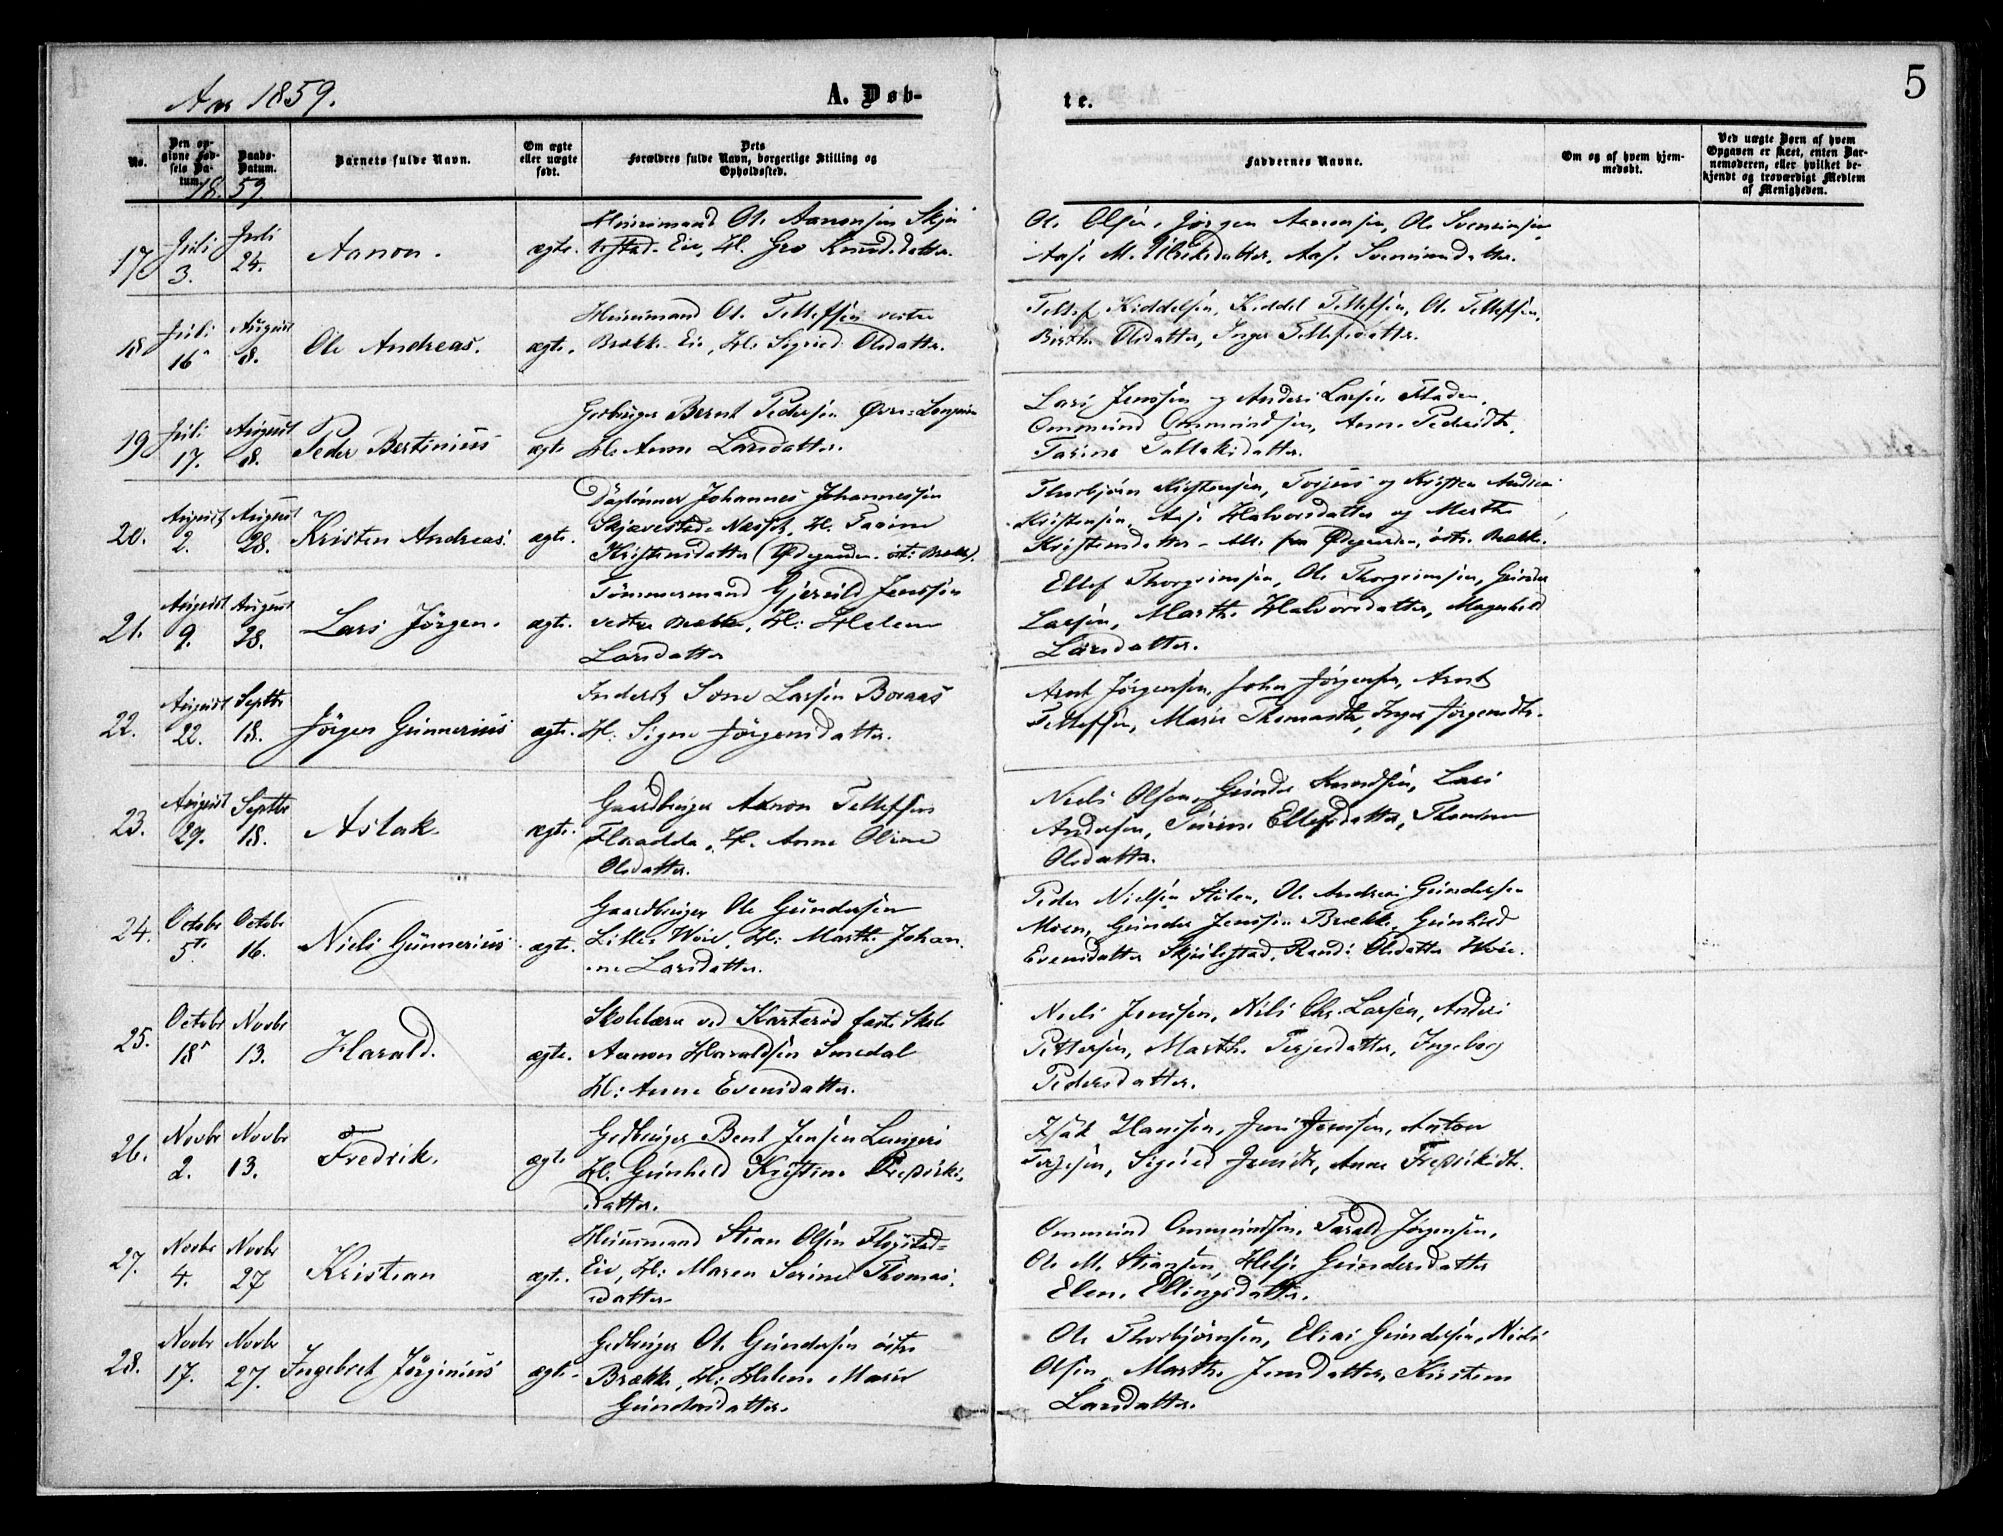 Aar 1859.
A. Døb-
te.
5
No.
Den op-
givne Fød-
sels Da-
tum.
Daabs-
Datum.
1859.
Barnets fulde Navn.
Om ægte
eller uægte
født.
Dets
Forældres fulde Navn, borgerlige Stilling og
Opholdssted.
Faddernes Navne.
Om og af hvem hjem-
medøbt.
Ved uægte Børn af hvem
Opgaven er skeet, enten Bar-
nemoderen, eller hvilket be-
kjendt og troværdigt Medlem
af Menigheden.
17
Juli
3.
Juli
24.
Aanon.
ægte.
Huusmand Ole Aanonsen
Eie, H. Gro Knudsdatter.
Ole Olsen, Jörgen Aanonsen, Ole Svenninsen,
Aase M. Ulriksdatter, Aase Svenninsdatter.
18
Juli
16
August
18.
Ole Andreas.
ægte.
Huusmand Ole Tellefsen vestre
Brække Eie, H. Sigrid Olsdatter.
Tellef Kiddelsen, Kiddel Tellefsen, Ole Tellefsen,
Birthe Olsdatter, Inger Tellefsdatter.
19
Juli
17.
August
18.
Peder Bertinius
ægte
Gedbruger Bernt Pedersen Øvre-
H: Anne Larsdatter.
Lars Jenssen og Anders Larsen Fladen,
Ommund Ommundsen, Anne Pedersdtr,
Tarine Tallaksdatter.
20.
August
2.
August
28.
Kristen Andreas.
ægte.
Daglönner Johannes Johannessen
Skjævestad- Næsset, H. Tarine
Kristensdatter (Ødegaarden östr: Brække).
Thorbjörn Kristensen, Terjus og Kristen Andreas
Kristensen, Aase Halvorsdatter og Marthe
Kristensdatter - Alle fra Ødegaarden, östr. Brække.
21.
August
9.
August
28.
Lars Jörgen.
ægte.
Tömmermand Gjeruld Jenssen
vestre Brække, H: Helene
Larsdatter
Ellef Thorgrimsen, Ole Thorgrimsen, Gunder
Larsen, Marthe Halvorsdatter, Magnhild
Larsdatter.
22.
August
22.
Septbr
18.
Jörgen Gunnerius
ægte.
Inderst Lars Larsen Boraas
H: Signe Jörgensdatter.
Arnt Jörgensen, John Jörgensen, Arnt
Tellefsen, Marie Thomasdtr, Inger Jörgensdtr.
23.
August
29.
Septbr
18.
Aslak
ægte.
Gaardbruger Aanon Tellefsen
Flaadda, H. Anne Oline
Olsdatter.
Niels Olsen, Gunder Knudsen, Lars
Andersen, Turine Ellefsdatter, Thomine
Olsdatter.
24.
Octobr
5te
Octobr
16.
Niels Gunnerius
ægte.
Gaardbruger Ole Gundersen
Lille- Woie, H: Marthe Johan-
ne Larsdatter.
Peder Nielsen Stölen, Ole Andreas Gundersen
Moen, Gunder Jenssen Brække, Gunhild
Evensdatter Skjulestad, Randi Olsdatter Woie.
25.
Octobr
18
Novbr
13.
Harald.
ægte.
Skolelærer ved Karterød faste Skole
Aanon Haraldsen Smedal
H: Anne Evensdatter.
Niels Jenssen, Nils Chr. Larsen, Anders
Pettersen, Marthe Terjesdatter, Ingeborg
Pedersdatter.
26.
Novbr
2.
Novbr
13.
Fredrik.
ægte
Gedbruger Bent Jensen
H. Gunhild Kristine Fredriks-
datter.
Isak Hanssen, Jens Jenssen, Anton
Terjesen, Sigrid Jensdtr, Anne Fredriksdtr.
27.
Novbr
4.
Novbr
27
Kristian
ægte.
Huusmand Stian Olsen Flogstad-
Eie, H: Maren Serine Thomas-
datter
Ommund Ommundsen, Tarald Jörgensen,
Ole M. Stiansen, Helje Gundersdatter
Elen Ellingsdatter.
28.
Novbr
17.
Novbr
27.
Ingebret Jörginius
ægte.
Gedbruger Ole Gundersen östre
Brække, H: Helene Marie
Gundersdatter.
Ole Thorbjörnsen, Elias Gundersen, Niels
Olsen, Marthe Jensdatter, Kirstine
Larsdatter.